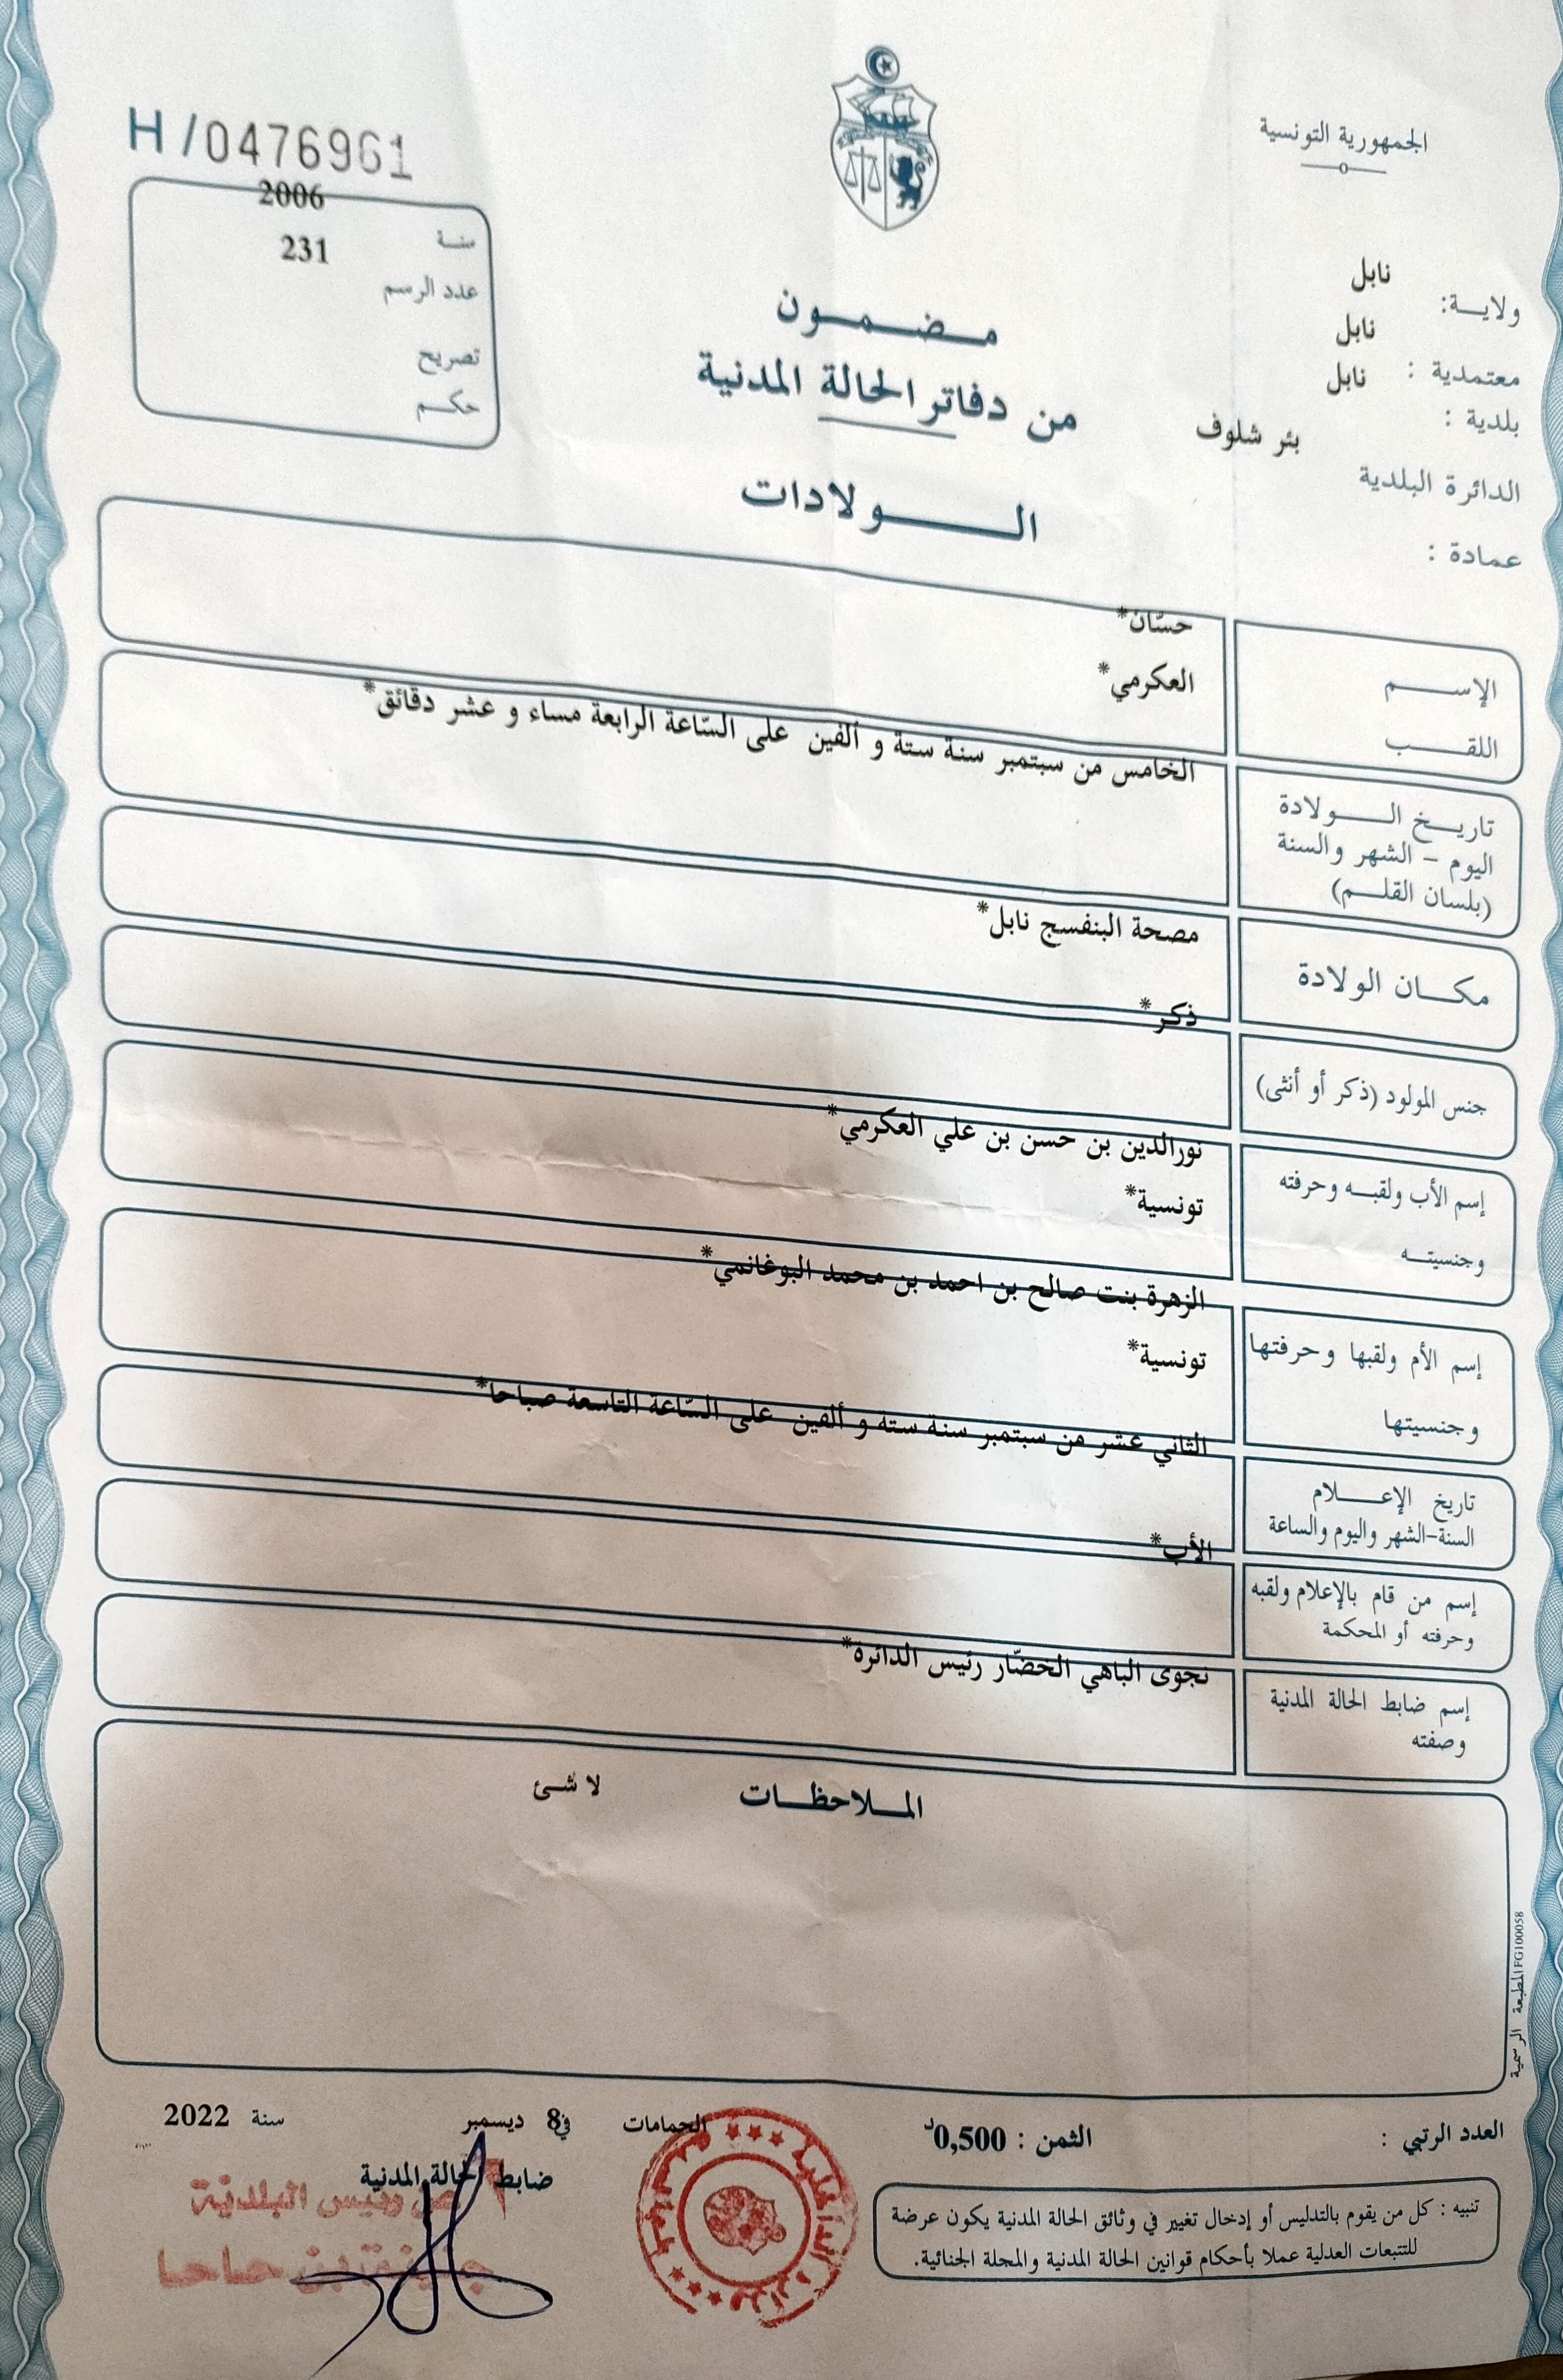 الجمهورية التونسية
H/0476961
سنة 2006
عدد الرسم 231
تصريح
حكم
ولاية: نابل
معتمدية : نابل
بلدية : نابل
الدائرة البلدية بئر شلوف
عمادة :
مضمون
من دفاتر الحالة المدنية
الولادات
الإسم حسّان*
اللقب العكرمي*
تاريخ الولادة
اليوم - الشهر والسنة
(بلسان القلم)
الخامس من سبتمبر سنة ستة و ألفين على السّاعة الرابعة مساء و عشر دقائق*
مكان الولادة مصحة البنفسج نابل*
جنس المولود (ذكر أو أنثى) ذكر*
إسم الأب ولقبه وحرفته نورالدين بن حسن بن علي العكرمي*
وجنسيته تونسية*
إسم الأم ولقبها وحرفتها الزهرة بنت صالح بن احمد بن محمد البوغانمي*
وجنسيتها تونسية*
تاريخ الإعلام
السنة-الشهر واليوم والساعة
الثاني عشر من سبتمبر سنة ستة و ألفين على السّاعة التاسعة صباحا*
إسم من قام بالإعلام ولقبه
وحرفته أو المحكمة
الأب*
إسم ضابط الحالة المدنية
وصفته
نجوى الباهي الخضّار رئيس الدائرة*
الملاحظات لا شئ
المطبعة الرسمية FG100058
العدد الرتبي :
الثمن : 0,500د
الحمامات في 8 ديسمبر سنة 2022
ضابط الحالة المدنية
رئيس البلدية
تنبيه : كل من يقوم بالتدليس أو إدخال تغيير في وثائق الحالة المدنية يكون عرضة
للتتبعات العدلية عملا بأحكام قوانين الحالة المدنية والمجلة الجنائية.